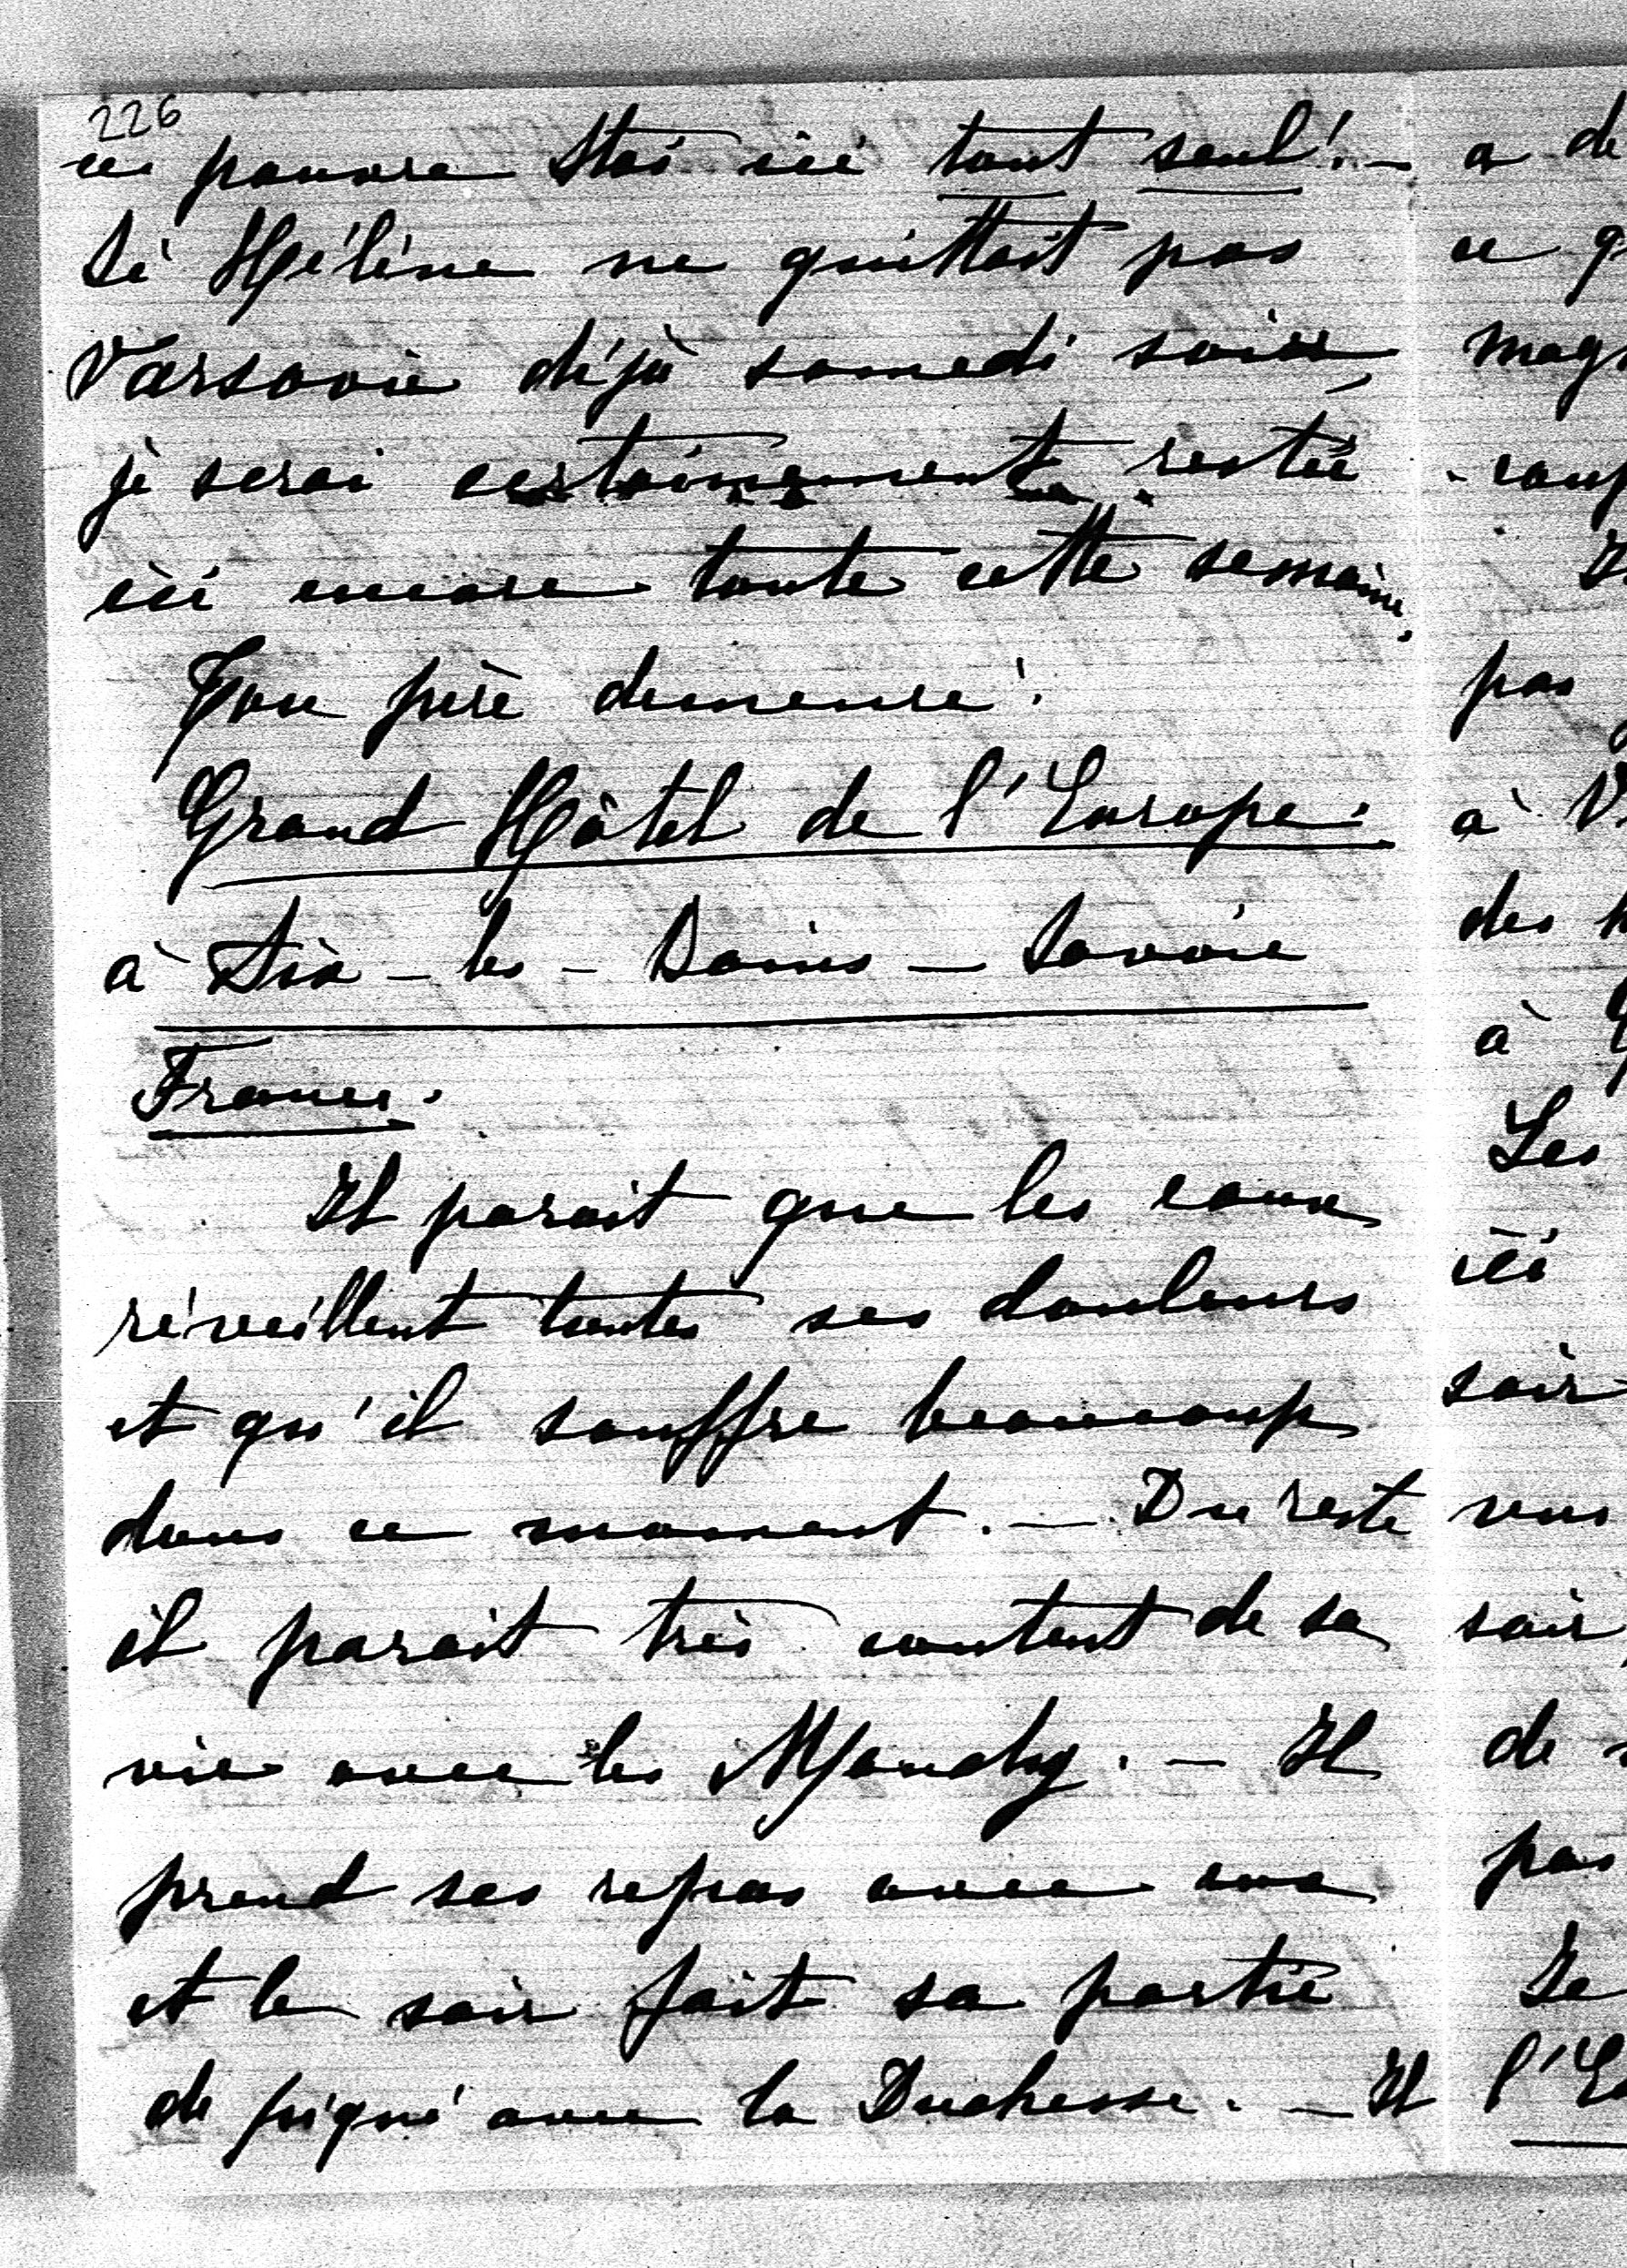 226
ce pauvre Staś ici tout seul! —
Si Hélène ne quittait pas
Varsovie déjà samedi soir,
je serai certainement restée
ici encore toute cette semaine.
Ton père demeure:
Grand Hôtel de l'Europe.
à Aix - les - Bains — Savoie
France.
Il parait que les eaux
réveillent toutes ses douleurs
et qu'il souffre beaucoup
dans ce moment. — Du reste
il parait très content de sa
vie avec les — Il
prend ses repas avec eux
et le soir fait sa partie
de piqué avec la Duchesse. — Il
a de
ce q
mag
pas
à V
des
à
Les
ici
soir
vous
soir
de
pas
Je
l'E